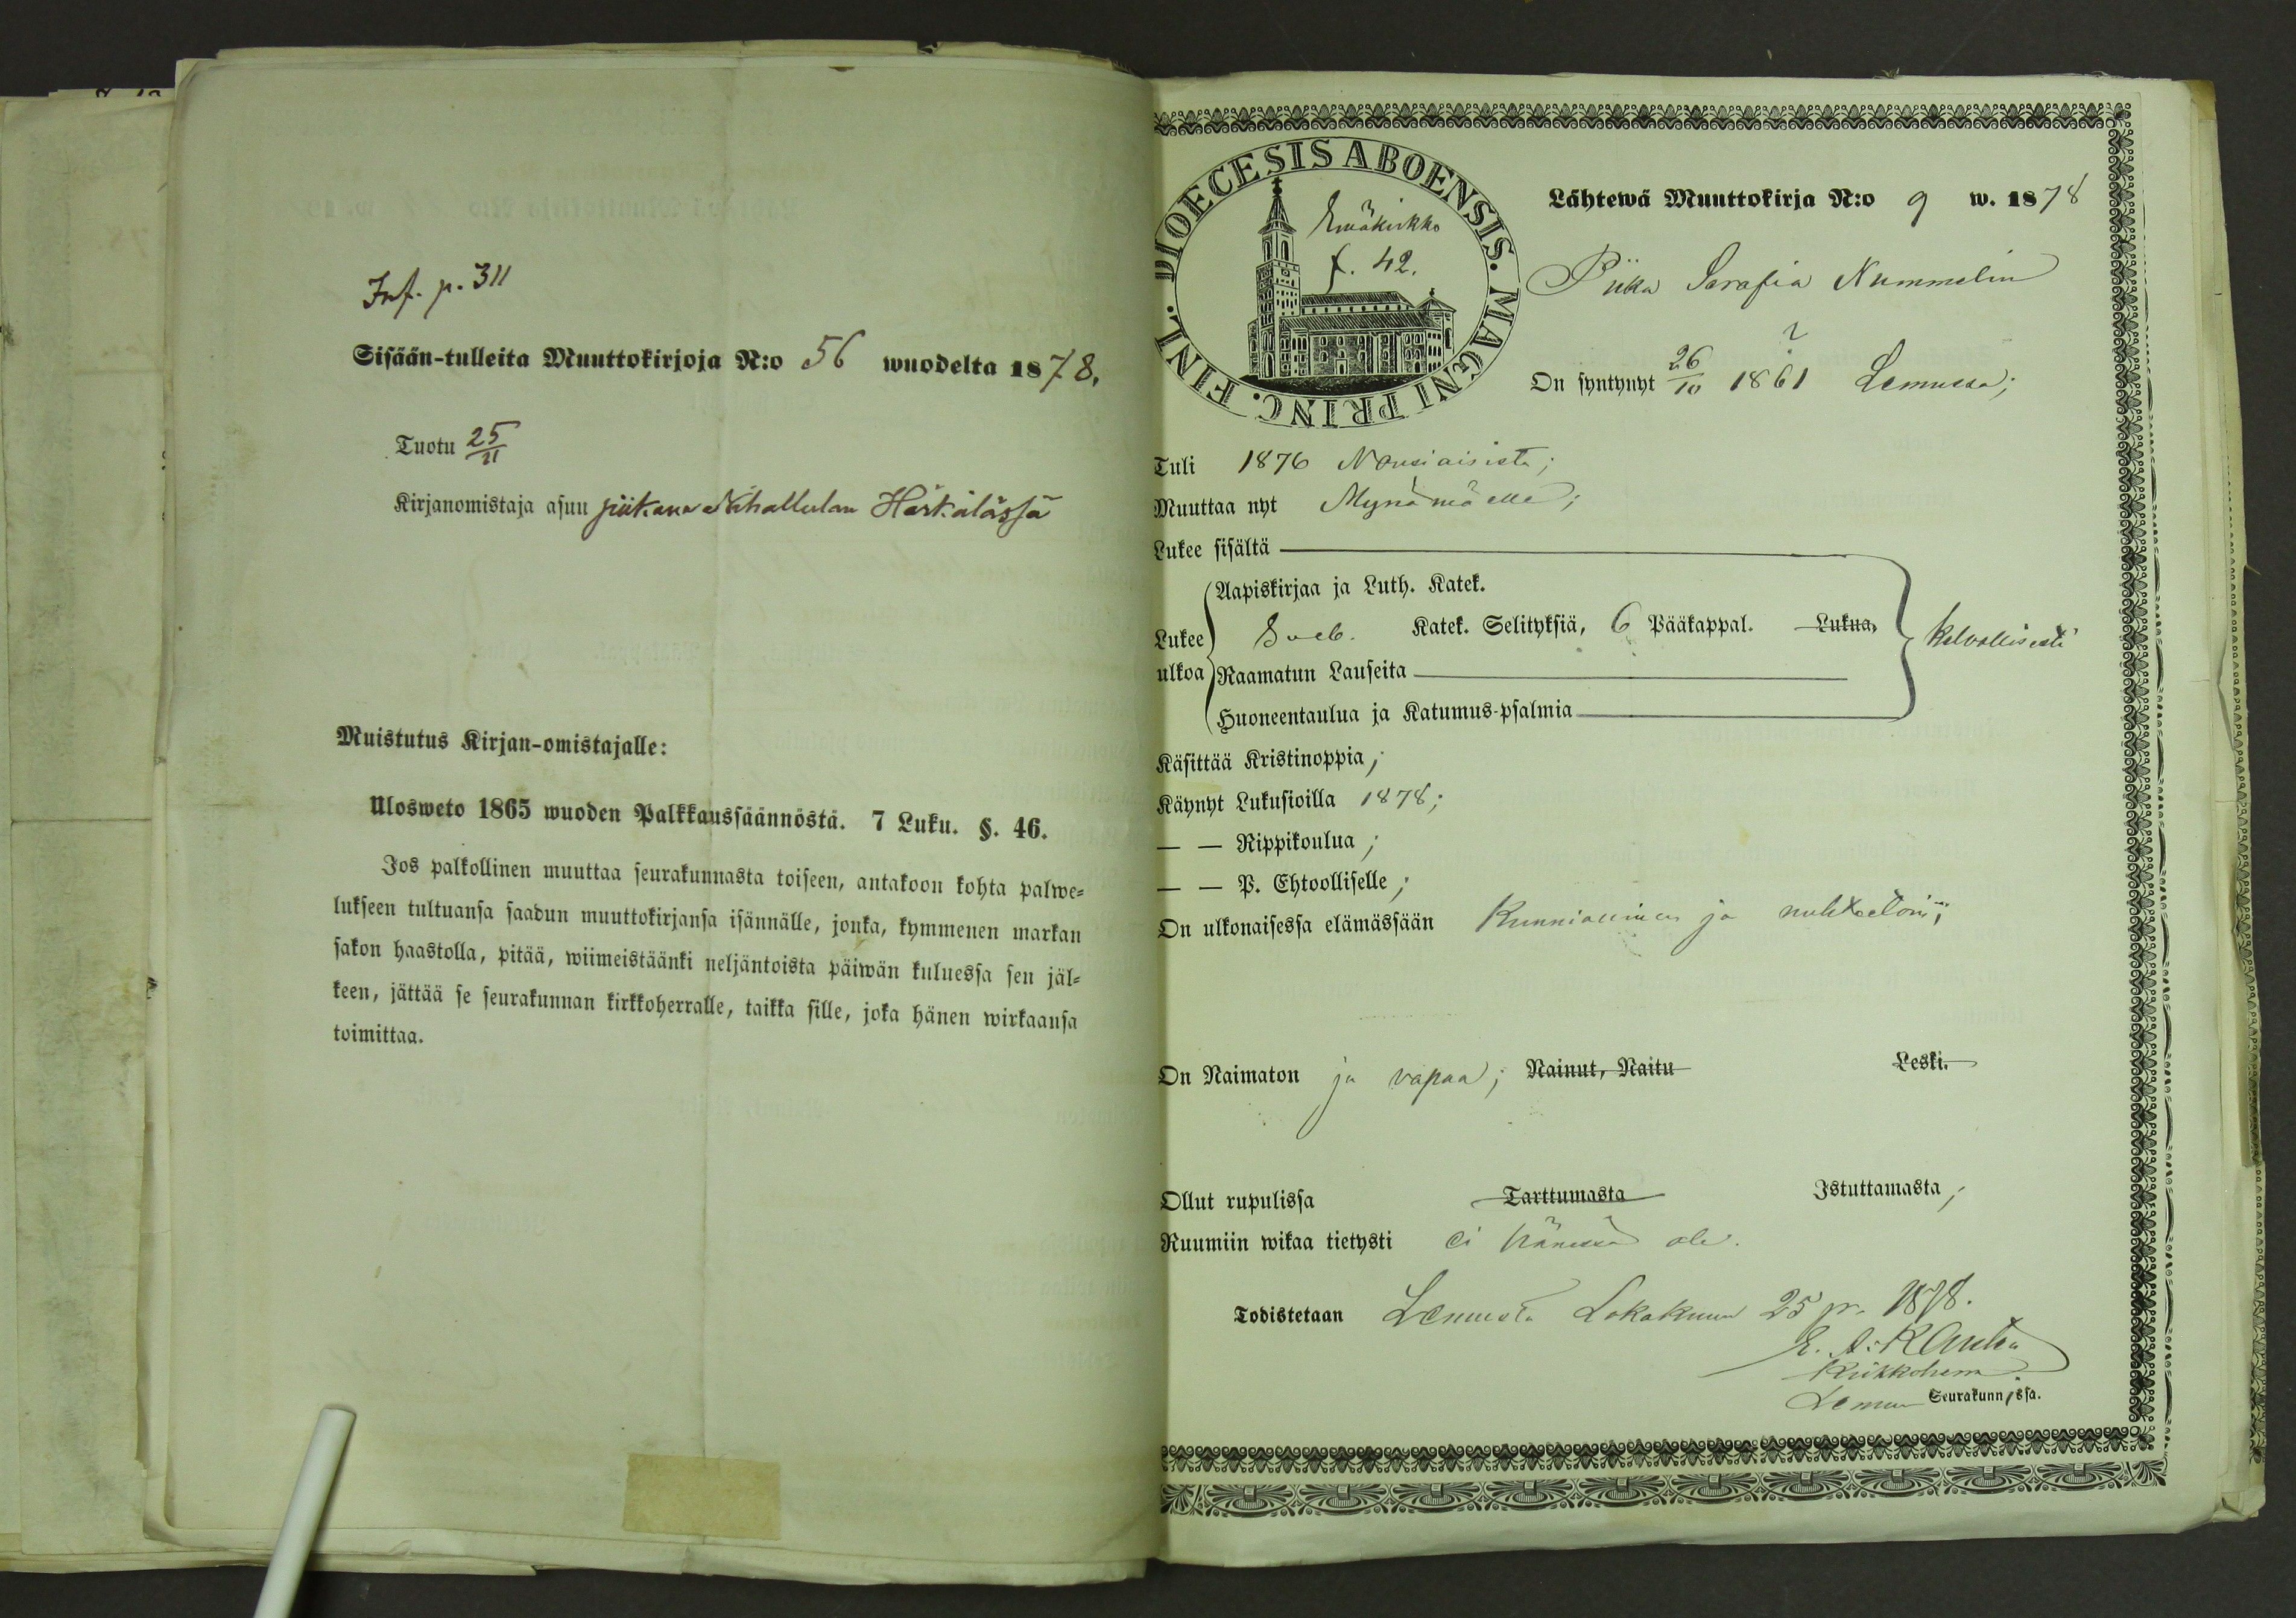 Inf. p. 311
Sisään-tulleita Muuttokirjoja N:o 56 wuodelta 1878.
Tuotu 25/11
Kirjanomistaja asuu piikana Nihattulan Härkälässä
Muistutus Kirjan-omistajalle:
Ulosweto 1865 wuoden Palkkaussäännöstä. 7 Luku. §. 46.
Jos palkollinen muuttaa seurakunnasta toiseen, antakoon kohta palwe-
lukseen tultuansa saadun muuttokirjansa isännälle, jonka, kymmenen markan
sakon haastolla, pitää, wiimeistäänki neljäntoista päiwän kuluessa sen jäl-
keen, jättää se seurakunnan kirkkoherralle, taikka sille, joka hänen wirkaansa
toimittaa.
DIOECESIS ABOENSIS. MAGNI PRINC. FINL.
Emäkirkko
f. 42.
Lähtewä Muuttokirja N:o 9 w. 1878
Piika Serafia Nummelin
On syntynyt 26/10 1861 Lemussa;
Tuli 1876 Nousiaisista;
Muuttaa nyt Mynämäelle;
Lukee sisältä
Aapiskirjaa ja Luth. Katek.
Lukee Sveb. Katek. Selityksiä, 6 Pääkappal. Lukua, kelvollisesti
ulkoa Raamatun Lauseita
Huoneentaulua ja Katumus-psalmia
Käsittää Kristinoppia;
Käynyt Lukusioilla 1878;
— — Rippikoulua;
— — P. Ehtoolliselle;
On ulkonaisessa elämässään Kunniallinen ja nuhteetoin;
On Naimaton ja vapaa; Nainut, Naitu Leski.
Ollut rupulissa Tarttumasta Istuttamasta;
Ruumiin wikaa tietysti ei hänessä ole.
Todistetaan Lemusta Lokakuun 25 p. 1878.
Kirkkoherra
Lemun Seurakunnissa.